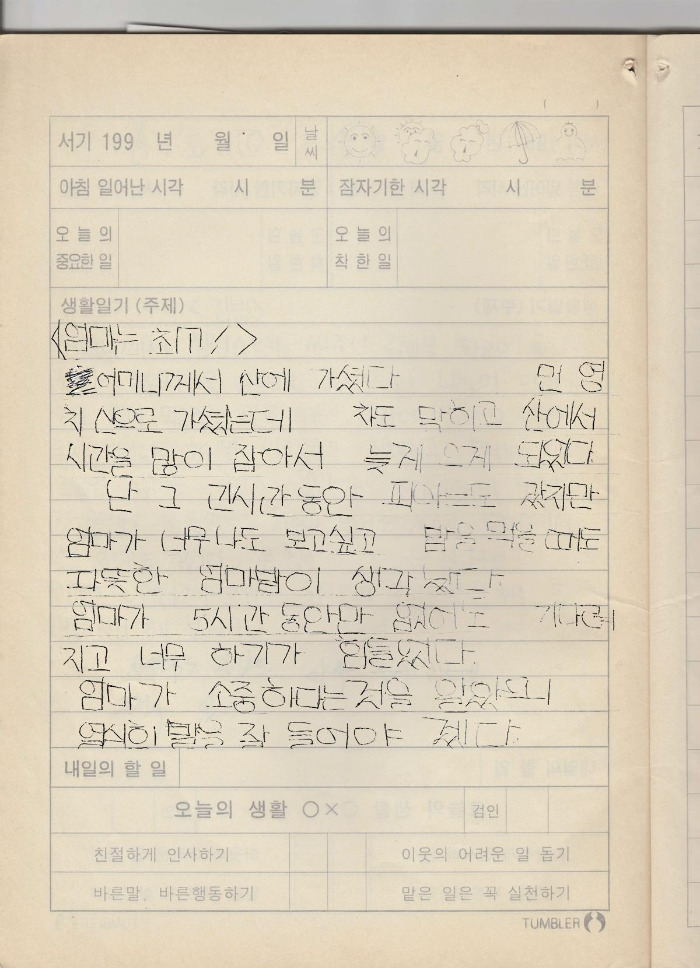 서기 199 년 월 일 날씨
아침 일어난 시각 시 분 잠자기한 시각 시 분
오늘의 중요한 일 오늘의 착한 일
생활일기 (주제)
<엄마는 최고!>
어머니께서 산에 가셨다 먼 영
치산으로 가셨는데 차도 막히고 산에서
시간을 많이 잡아서 늦게 오게 되었다
난 그 긴시간동안 피아노도 쳤지만
엄마가 너무나도 보고싶고 밥을 먹을 때도
따뜻한 엄마밥이 생각났다
엄마가 5시간 동안만 없어도 기다려
지고 너무 하기가 힘들었다.
엄마가 소중하다는것을 알았으니
열심히 말을 잘 들어야 겠다
내일의 할 일
오늘의 생활 ○× 검인
친절하게 인사하기 이웃의 어려운 일 돕기
바른말, 바른행동하기 맡은 일은 꼭 실천하기
TUMBLER